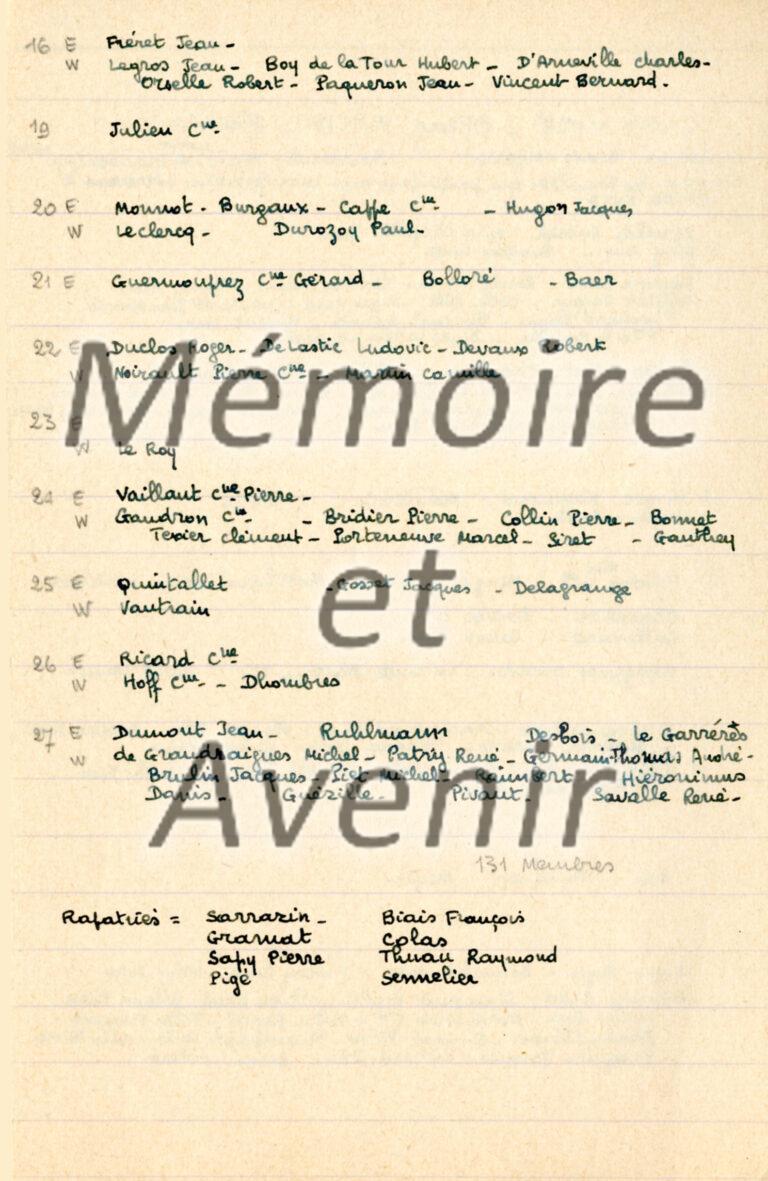 16 E Fréret Jean -
W Legros Jean - Boy de la Tour Hubert - D'Arneville charles -
Orselle Robert - Paqueron Jean - Vincent Bernard.
19 Julien Cne
20 E Monnot - Burgaux - Caffe Cne - Hugon Jacques
W Leclercq - Durozoy Paul -
21 E Guermonprez Cne Gérard - Bolloré - Baer
22 E Duclos Roger - De Lastic Ludovic - Devaux Robert
W Noirault Pierre Cne - Martin Camille
Mémoire
23 E
W Le Roy
24 E Vaillant Cne Pierre -
W Gaudron Cne - Bridier Pierre - Collin Pierre - Bonnet
Texier clément - Porteneuve Marcel - Siret - Gauthey
25 E Quintallet - Gosset Jacques - Delagrange
W Vautrain
et
26 E Ricard Cne
W Hoff Cne - Dhombres
27 E Dumont Jean - Ruhlmann Desbois - le Garrérès
W de Grandsaignes Michel - Patriz René - Germain-Thomas André -
Brulin Jacques - Piet Michel - Raimbert Hiéronimus
Danis - Guézille - Pivant - Savalle René -
Avenir
131 Membres
Rapatriés = Sarrazin - Biais François
Gramat Colas
Sapy Pierre Thuau Raymond
Pigé Sennelier